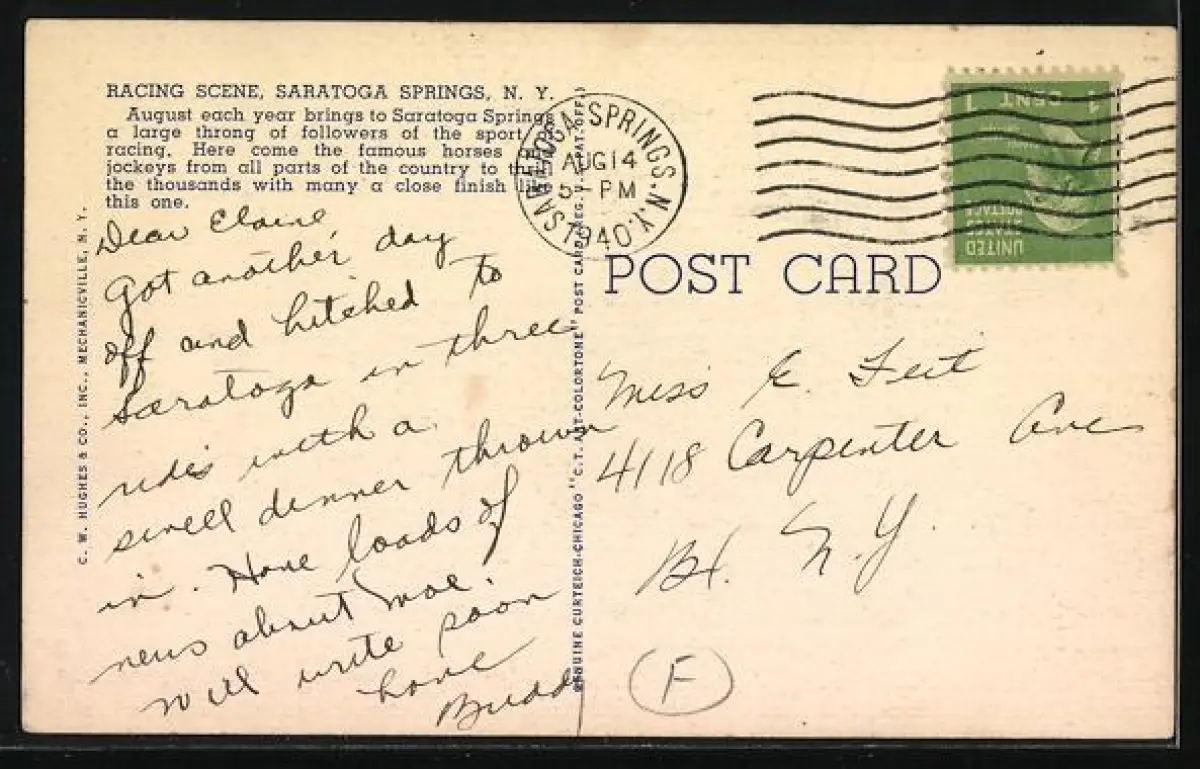 RACING SCENE, SARATOGA SPRINGS, N. Y.
August each year brings to Saratoga Springs
a large throng of followers of the sport of
racing. Here come the famous horses and
jockeys from all parts of the country to thrill
the thousands with many a close finish like
this one.
Dear Elaine,
Got another day
off and hitched to
Saratoga in three
rides with a
swell dinner thrown
in. Have loads of
news about Moe.
Will write soon
Love
Budd
C. W. HUGHES & CO., INC., MECHANICVILLE, N. Y.
GENUINE CURTEICH-CHICAGO "C.T. ART-COLORTONE" POST CARD (REG. U.S. PAT. OFF.)
SARATOGA SPRINGS. N.Y.
AUG 14
5 - PM
1940
1 CENT 1
UNITED
STATES
POSTAGE
POST CARD
Miss E. Feit
4118 Carpenter Ave
Bx. N.Y.
F